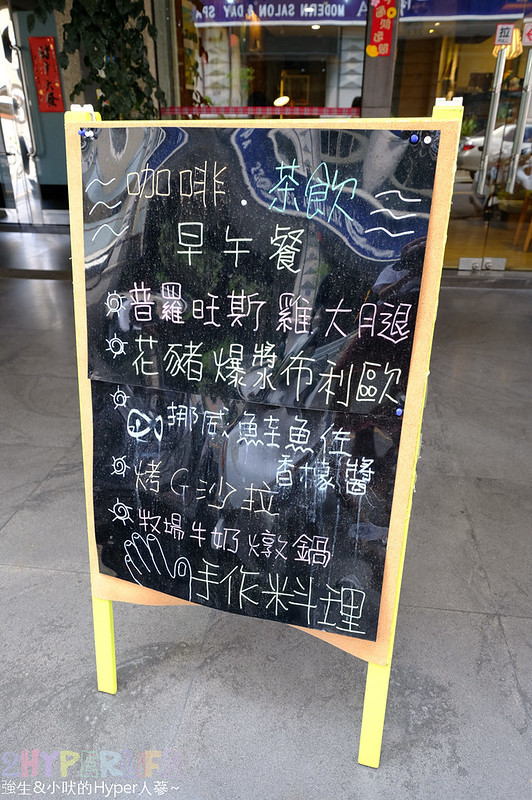 MODERN SALON & DAY SPA
拉
咖啡 茶飲
早午餐
普羅旺斯雞大腿
花豬爆漿布利歐
挪威鮭魚佐
香檬醬
烤G沙拉
牧場牛奶燉鍋
手作料理
2HYPERLIFE
強生&小吠的Hyper人蔘~